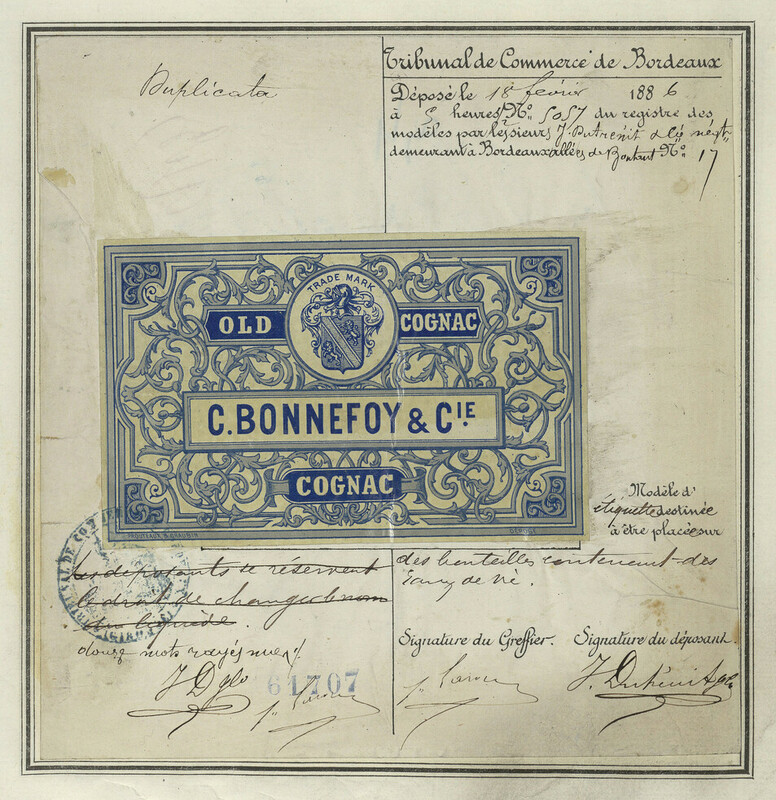 Duplicata
Tribunal de Commerce de Bordeaux
Déposé le 18 février 1886
à 5 heures No. 5057 du registre des
modèles par les sieurs J.
demeurant à Bordeaux allées de No. 17
TRADE MARK
OLD COGNAC
C. BONNEFOY & CIE
COGNAC
DÉPOSÉ
Modèle d'
étiquette destinée
à être placée sur
des bouteilles contenant des
Eaux de vie.
Les déposants se réservent
le droit de changer le nom
du liquide.
douze mots rayés nuls
61707
Signature du Greffier. Signature du déposant.